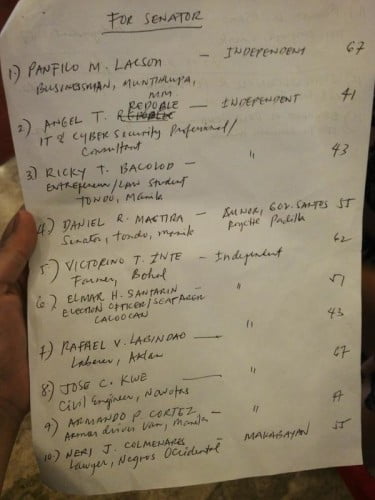 FOR SENATOR
1) PANFILO M. LACSON — INDEPENDENT 67
BUSINESSMAN, MUNTINLUPA,
MM
2) ANGEL T. REDOBLE — INDEPENDENT 41
IT & CYBER Security Professional/
Consultant
3) RICKY T. BACOLOD — " 43
ENTREPRENEUR/LAW Student
TONDO, Manila
4) DANIEL R. MAGTIRA — 55
Senator, Tondo, Manila
5) VICTORINO T. INTE — Independent 62
Farmer, Bohol
6) ELMAR H. SANTARIN — " 51
ELECTION OFFICER/SEAFARER
CALOOCAN
7) RAFAEL V. LABINDAO — " 43
Laborer, Aklan
8) JOSE C. KWE — " 67
Civil Engineer, Navotas
9) ARMANDO P. CORTEZ — "
driver van, Manila
10) NERI J. COLMENARES — MAKABAYAN 55
Lawyer, Negros Occidental